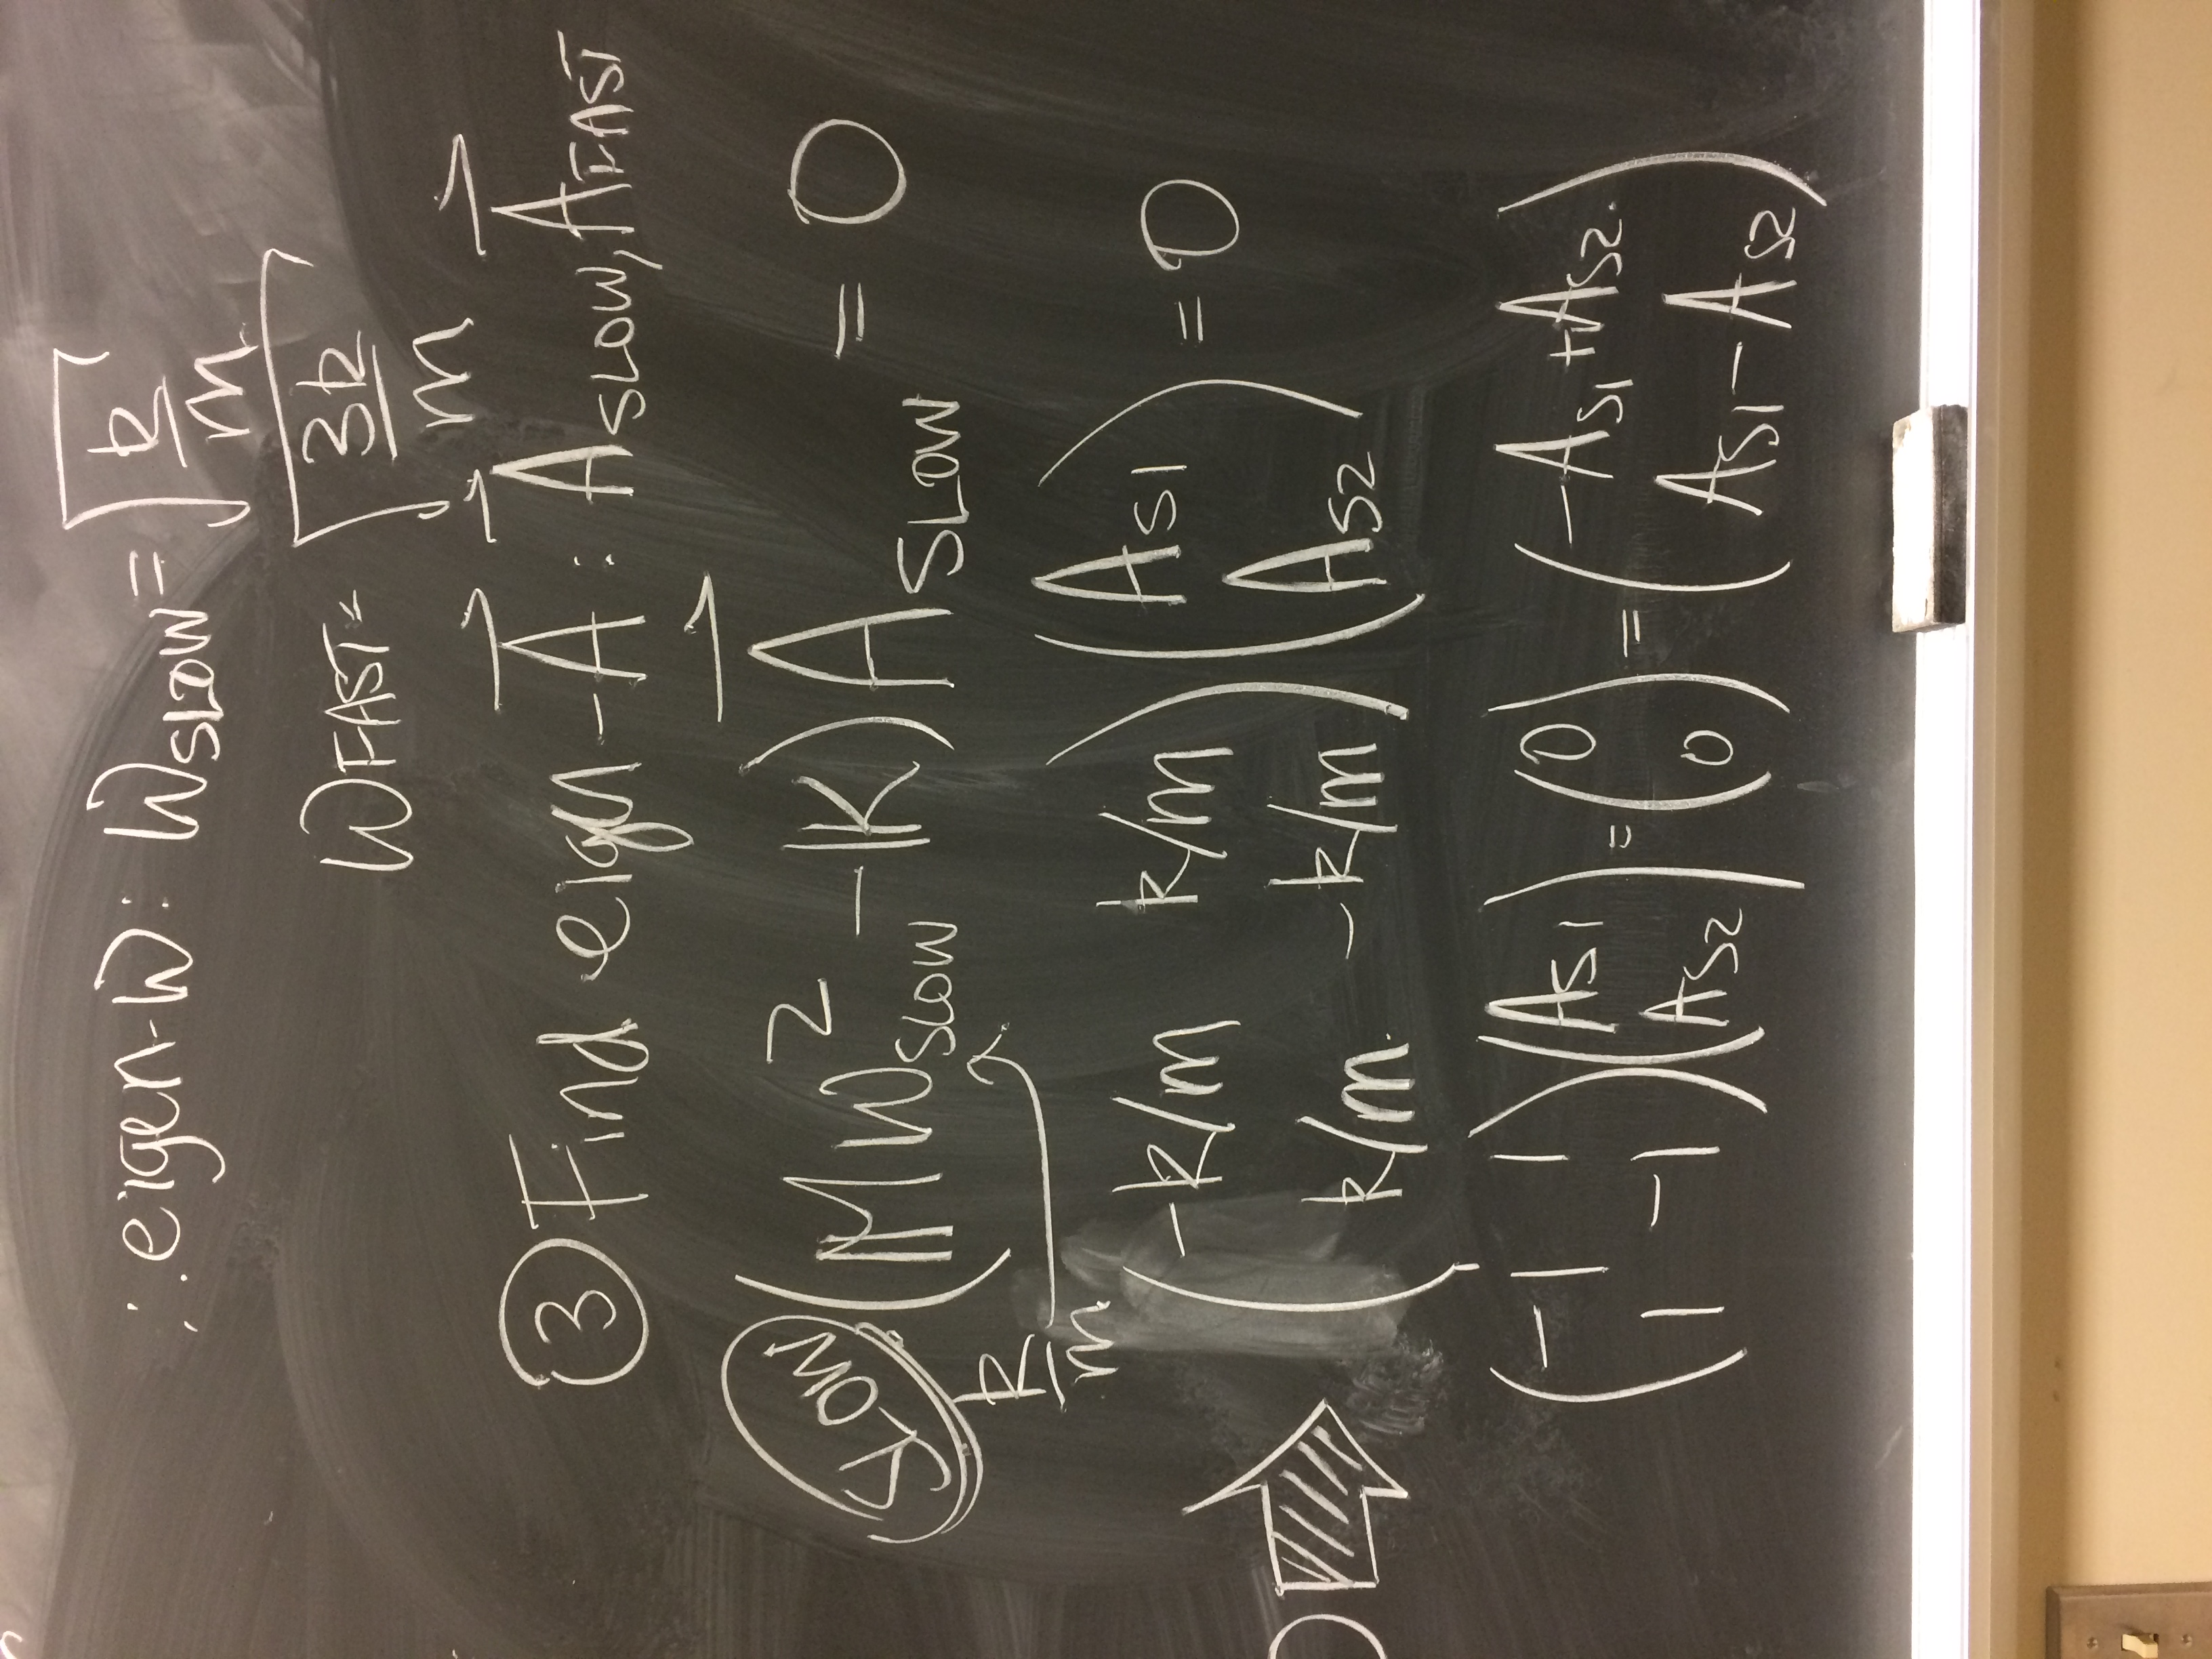 ∴ eigen-ω: ω_SLOW = √(k/m)
ω_FAST = √(3k/m)
③ Find eign-A⃗: A⃗_SLOW, A⃗_FAST
SLOW (Mω²_SLOW - K) A⃗_SLOW = 0
k/m
(-k/m k/m) (A_S1) = 0
(k/m -k/m) (A_S2)
(-1 1) (A_S1) = (0) = (-A_S1 + A_S2)
(1 -1) (A_S2) (0) (A_S1 - A_S2)